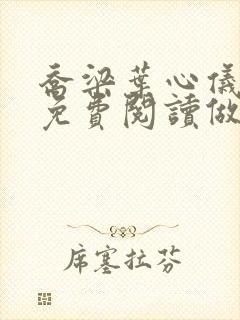 喬梁葉心儀
免費閱讀做
席塞拉芬